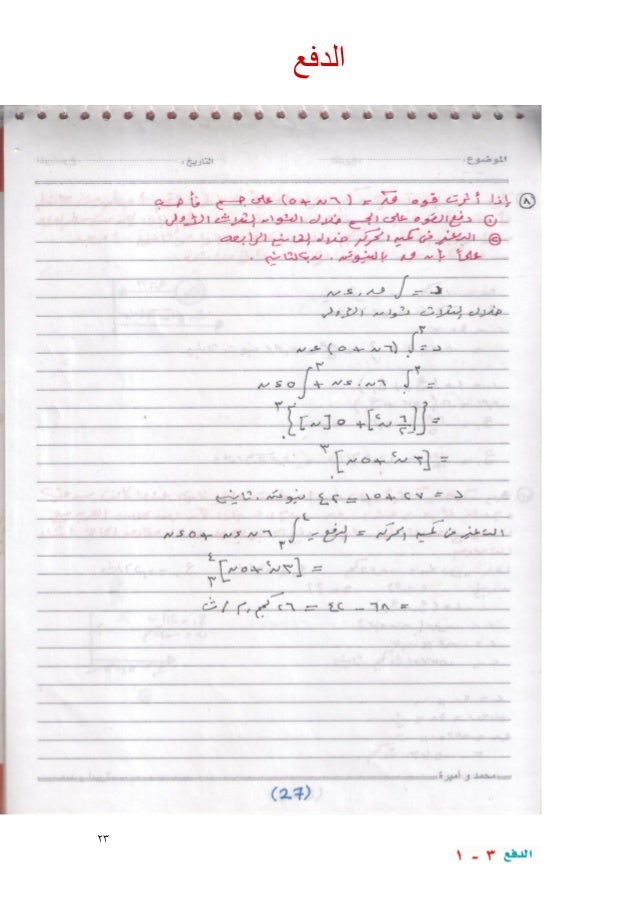 الدفع
الموضوع: التاريخ:
٨ إذا أثرت قوه ق = (٦ن + ٥) على جسم فأحسب
① دفع القوه على الجسم خلال الثوان الثلاث الأولى
② التغير فى كميه الحركه خلال الثانيه الرابعه
علماً بأن ق بالنيوتن. ن بالثانيه.
د = ∫ ق. ءن
خلال الثلاث ثوان الأولى
د = ∫₀³ (٦ن + ٥) ءن
= ∫₀³ ٦ن. ءن + ∫₀³ ٥ ءن
= {[٦/٢ ن²] + ٥[ن]}₀³
= [٣ن² + ٥ن]₀³
د = ٢٧ + ١٥ = ٤٢ نيوتن. ثانيه
التغير فى كميه الحركه = الدفع = ∫₃⁴ ٦ن ءن + ٥ ءن
= [٣ن² + ٥ن]₃⁴
= ٦٨ - ٤٢ = ٢٦ كجم.م/ث
محمد و اميرة
(27)
٢٣
الدفع ٣ - ١